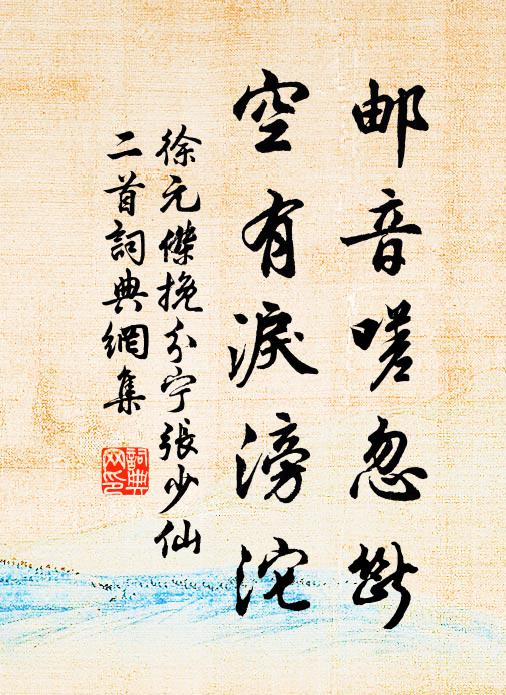 邮音嗟忽断
空有淚滂沱
徐元傑挽分宁張少仙
二首詞典網集
詞典
网印